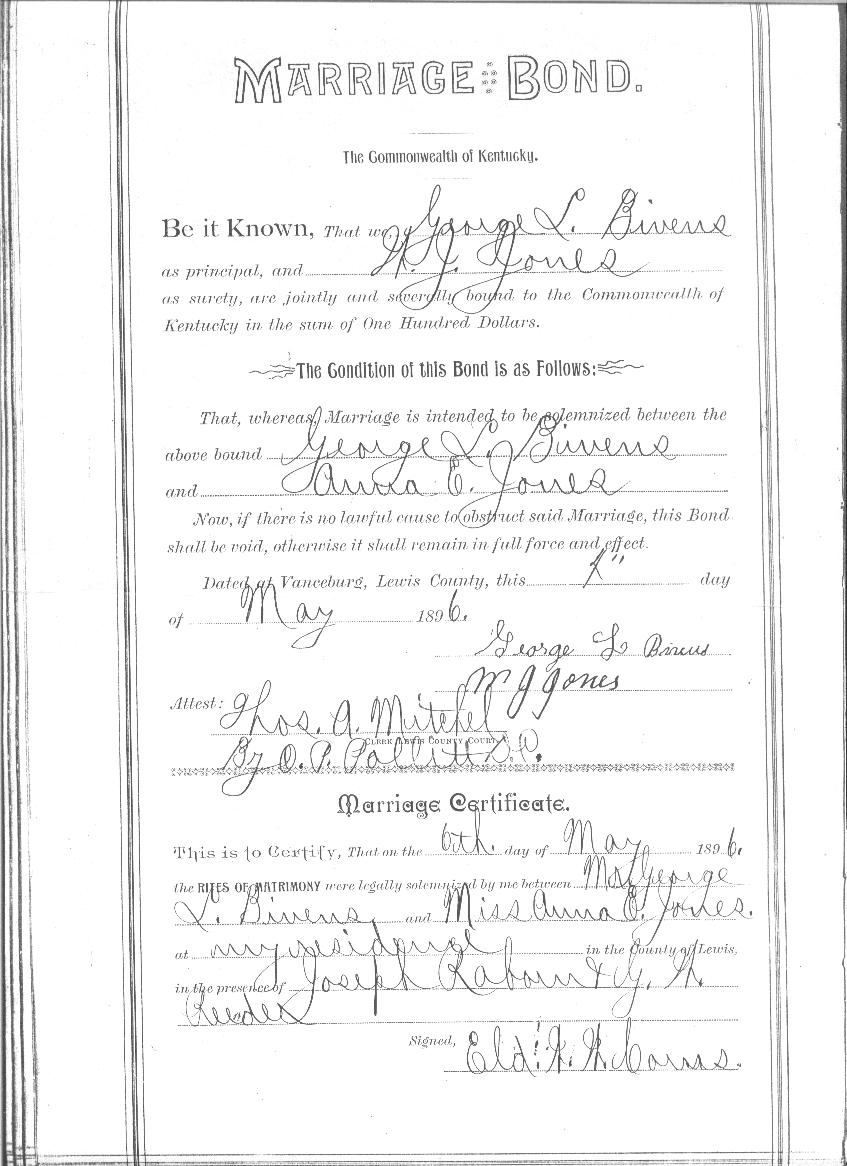 MARRIAGE BOND.
The Commonwealth of Kentucky.
Be it Known, That we, George L. Bivens
as principal, and W. J. Jones
as surety, are jointly and severally bound to the Commonwealth of
Kentucky in the sum of One Hundred Dollars.
The Condition of this Bond is as Follows:
That, whereas, Marriage is intended to be solemnized between the
above bound George L. Bivens
and Anna E. Jones
Now, if there is no lawful cause to obstruct said Marriage, this Bond
shall be void, otherwise it shall remain in full force and effect.
Dated at Vanceburg, Lewis County, this day
of May 1896.
George L Bivens
W J Jones
Attest: Thos. A. Mitchel
CLERK LEWIS COUNTY COURT
By O. P. Pollitt D.C.
Marriage Certificate.
This is to Certify, That on the 6th. day of May 1896.
the RITES OF MATRIMONY were legally solemnized by me between Mr George
L. Bivens and Miss Anna E. Jones.
at my residence in the County of Lewis,
in the presence of Joseph Rabourn & W.
Reeder
Signed, Eld.